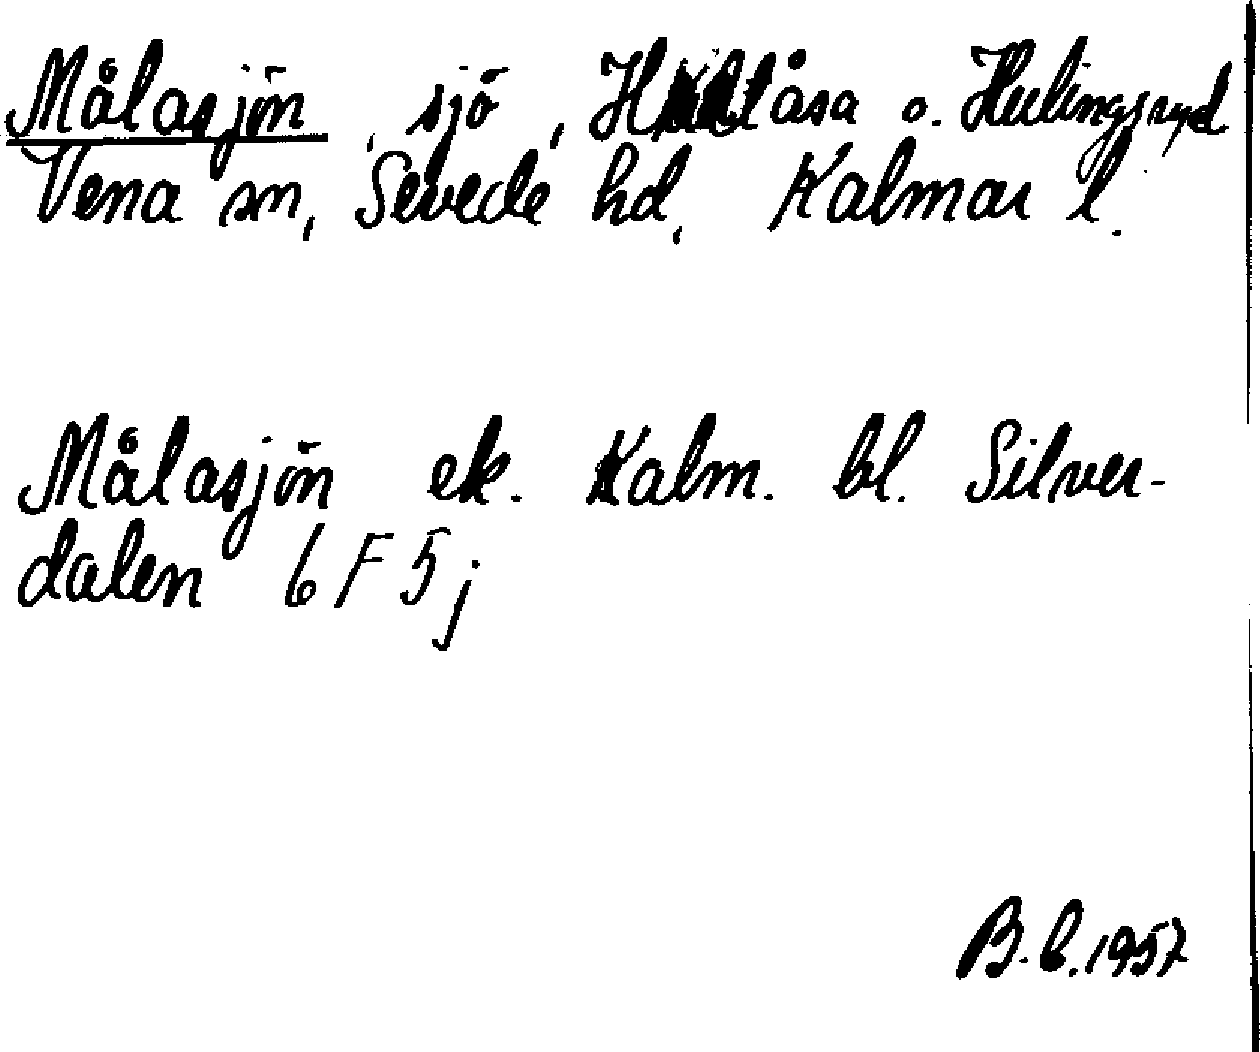 Målasjön, sjö, Hultåsa o. Hulingsryd
Vena sn, Sevede hd, Kalmar l.
Målasjön ek. Kalm. bl. Silver-
dalen 6F5j
B.b. 1957